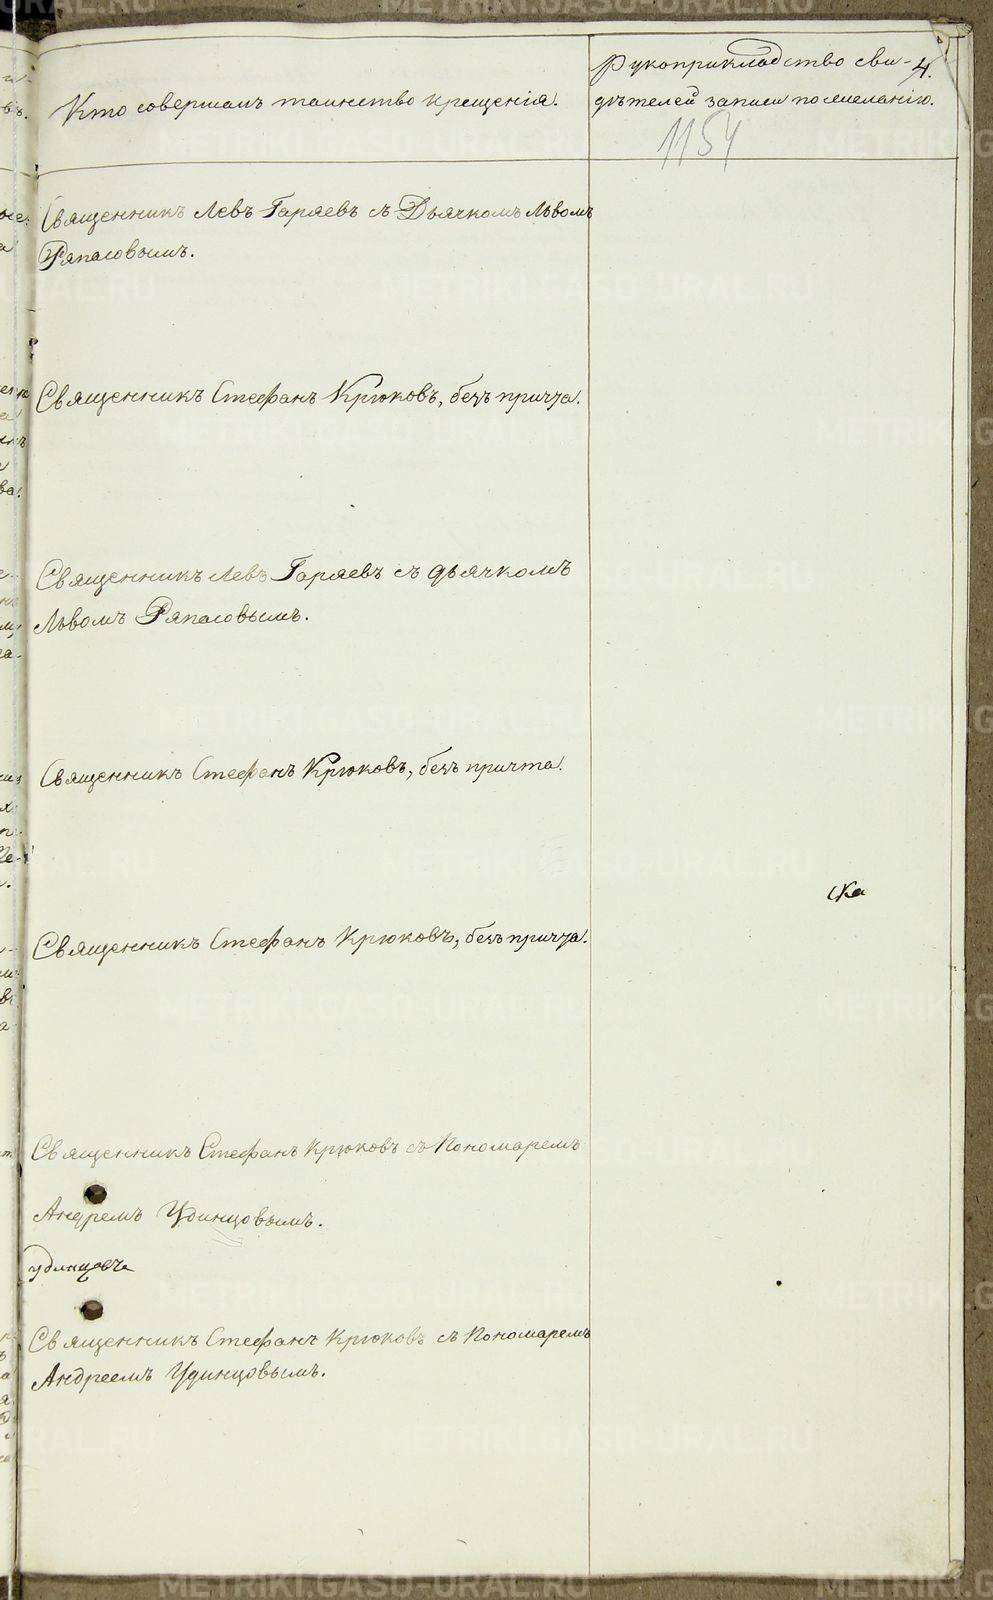 Кто совершалъ таинство крещенія.
Рукоприкладство сви-
дѣтелей записи по желанію.
4.
1154
Священникъ Левъ Гаряевъ съ Дьячкомъ Львомъ
Ряпасовымъ.
Священникъ Стефанъ Крюковъ, безъ причта.
Священникъ Левъ Гаряевъ съ дьячкомъ
Львомъ Ряпасовымъ.
Священникъ Стефанъ Крюковъ, безъ причта.
Священникъ Стефанъ Крюковъ, безъ причта.
Священникъ Стефанъ Крюковъ съ Пономаремъ
Андреемъ Удинцовымъ.
удинцовъ
Священникъ Стефанъ Крюковъ съ Пономаремъ
Андреемъ Удинцовымъ.
METRIKI.GASO-URAL.RU